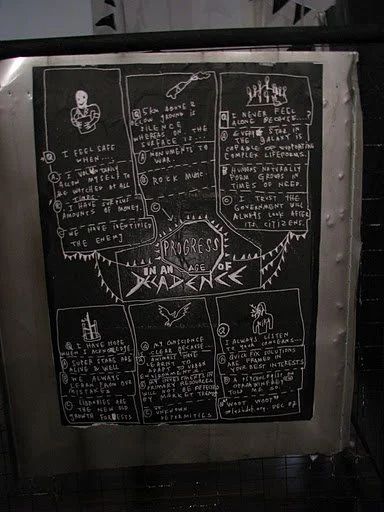 Q I FEEL SAFE
WHEN....
A I VOLUNTARILY
ALLOW MYSELF TO
BE WATCHED AT ALL
TIMES
B I HAVE SURPLUS
AMOUNTS OF MONEY.
C WE HAVE IDENTIFIED
THE ENEMY
Q 5KM ABOVE &
BELOW GROUND IS
SILENCE.
WHEREAS ON THE
SURFACE IS...
A MONUMENTS TO
WAR.
B ROCK MUSIC.
C
Q I NEVER FEEL
ALONE BECAUSE...?
A EVERY STAR IN
THE GALAXY IS
CAPABLE OF SUPPORTING
COMPLEX LIFEFORMS.
B HUMANS NATURALLY
FORM GROUPS IN
TIMES OF NEED.
C I TRUST THE
GOVERNMENT WILL
ALWAYS LOOK AFTER
ITS CITIZENS.
PROGRESS
IN AN AGE OF
DECADENCE
Q I HAVE HOPE
WHEN I ACKNOWLEDGE
A SUPER HEROES ARE
ALIVE & WELL
B WE ALWAYS
LEARN FROM OUR
MISTAKES
C LIBRARIES ARE
THE NEW OLD
GROWTH FORESTS
Q MY CONSCIENCE
IS CLEAR BECAUSE...
A ANIMALS HAVE
LEARNT TO
ADAPT TO URBAN
ENVIRONMENTS
B MY INVESTMENTS IN
HUMAN RESOURCES
WILL BE DEFINED
BY MARKET TRENDS
C OF UNKNOWN
Q
I ALWAYS LISTEN
TO YOUR CONCERNS...
A QUICK FIX SOLUTIONS
ARE FRAMED IN
YOUR BEST INTERESTS
B A PSYCHOLOGIST
TOLD ME SO
"WOOT WOOT"
DEC 07